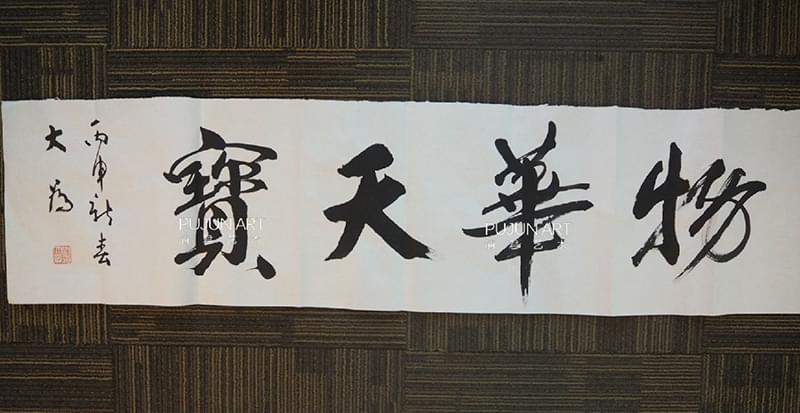 物華天寶
丙申新春
大為
PUJUN ART
PUJUN ART